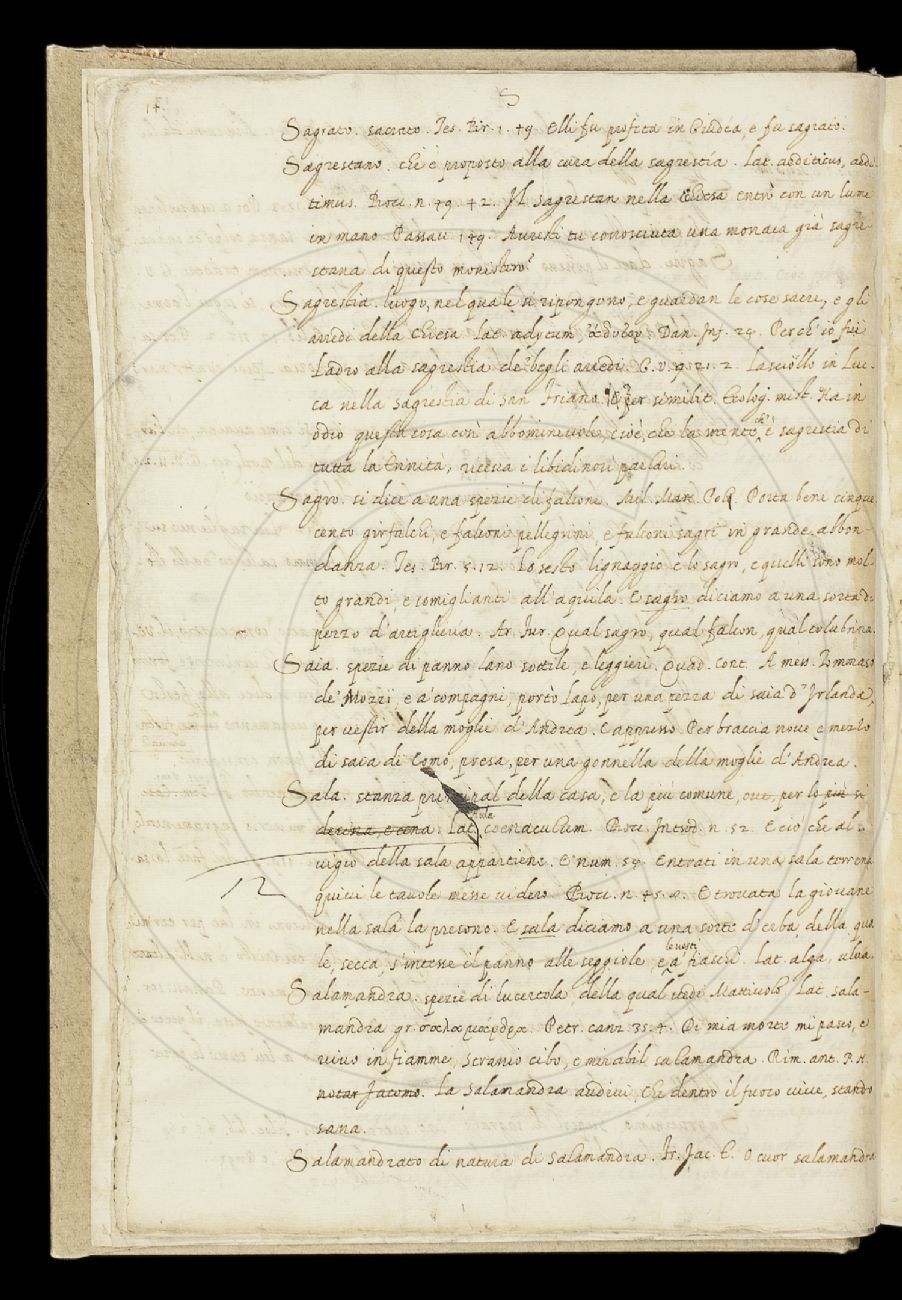 S
Sagrato. sacrato. Tes. Br. 1. 49 Elli fu profeta in Giudea, e fu sagrato.
Sagrestano. chi è proposto alla cura della sagrestia. Lat. aedituus, aedi-
timus. Bocc. n. 49. 42. Il sagrestan nella Chiesa entrò con un lume
in mano. Passav. 149. Avresti tu conosciuta una monaca già sagre-
stana di questo monistero?
Sagrestia. luogo, nel quale si ripongono, e guardan le cose sacre, e gli
arredi della Chiesa. Lat. adytum, ἄδυτον. Dan. Inf. 24. Perch' io fui
Ladro alla sagrestia de' begli arredi. G. V. 9. 21. 2. Lasciollo in Luc-
ca nella sagrestia di San Friano. E per similit. Teolog. mist. Ha in
odio questa cosa così abbominevole, cioè, che la mente, ch' è sagrestia di
tutta la Trinità, riceva i libidinosi parlari.
Sagro. si dice a una spezie di falcone. Mil. Marc. Pol. Porta bene cinque
cento girfalchi, e falconi pellegrini, e falconi sagri in grande abbon-
danza. Tes. Br. 5. 12. Lo sesto lignaggio è lo sagro, e quelli sono mol-
to grandi, e somiglianti all' aquila. E sagro diciamo a una sorta di
pezzo d'artiglieria. Ar. Fur. Qual sagro, qual falcon, qual colubrina.
Saia. spezie di panno lano sottile, e leggieri. Quad. Cont. A mess. Tommaso
de' Mozzi, e a' compagni, portò Lapo, per una pezza di saia d' Irlanda,
per vestir della moglie d' Andrea. E appresso. Per braccia nove e mezzo
di saia di Como, presa, per una gonnella della moglie d' Andrea.
Sala. stanza principal della casa, e la più comune, ove, per lo più si
desina, e cena. Lat. aula coenaculum. Bocc. Introd. n. 52. E ciò che al ser-
vigio della sala appartiene. E num. 54. Entrati in una sala terrena
12 quivi le tavole messe videro. Bocc. n. 45. 8. E trovata la giovane
nella sala la presono. E sala diciamo a una sorte d'erba, della qua-
le, secca, s'intesse il panno alle seggiole, e le vesti a' fiaschi. Lat. alga, ulva.
Salamandra. spezie di lucertola, della qual vedi Mattiuolo. Lat. sala-
mandra gr. σαλαμάνδρα. Petr. canz. 35. 4. Di mia morte mi pasco, e
vivo in fiamme, Stranio cibo, e mirabil salamandra. Rim. ant. P. N.
notar Jacomo. La salamandra audivi, Che dentro il fuoco vive, stando
sana.
Salamandrato di natura di salamandra. Fr. Jac. T. O cuor salamandra